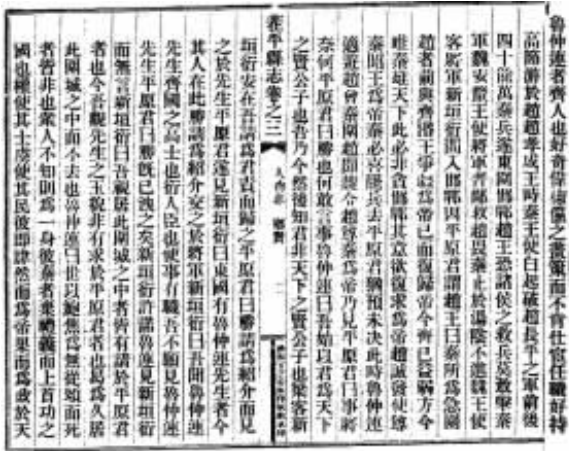 魯仲連者齊人也好奇偉俶儻之畫策而不肯仕宦任職好持
高節游於趙趙孝成王時秦王使白起破趙長平之軍前後
四十餘萬秦兵遂東圍邯鄲趙王恐諸侯之救兵莫敢擊秦
軍魏安釐王使將軍晉鄙救趙畏秦止於湯陰不進魏王使
客將軍新垣衍間入邯鄲因平原君謂趙王曰秦所爲急圍
趙者前與齊湣王爭强爲帝已而復歸帝今齊已益弱方今
唯秦雄天下此必非貪邯鄲其意欲復求爲帝趙誠發使尊
秦昭王爲帝秦必喜罷兵去平原君猶預未決此時魯仲連
適遊趙會秦圍趙聞魏令趙尊秦爲帝乃見平原君曰事將
奈何平原君曰勝也何敢言事魯仲連曰吾始以君爲天下
之賢公子也吾乃今然後知君非天下之賢公子也梁客新
茌平縣志卷之三 人物志 鄉賢 二
垣衍安在吾請爲君責而歸之平原君曰勝請爲紹介而見
之於先生平原君遂見新垣衍曰東國有魯仲連先生者今
其人在此勝請爲紹介交之於將軍新垣衍曰吾聞魯仲連
先生齊國之高士也衍人臣也使事有職吾不願見魯仲連
先生平原君曰勝既已洩之矣新垣衍許諾魯連見新垣衍
而無言新垣衍曰吾視居此圍城之中者皆有請於平原君
者也今吾觀先生之玉貌非有求於平原君者也曷爲久居
此圍城之中而不去也魯仲連曰世以鮑焦爲無從頌而死
者皆非也衆人不知則爲一身彼秦者棄禮義而上首功之
國也權使其士虜使其民彼即肆然而爲帝果而爲政於天